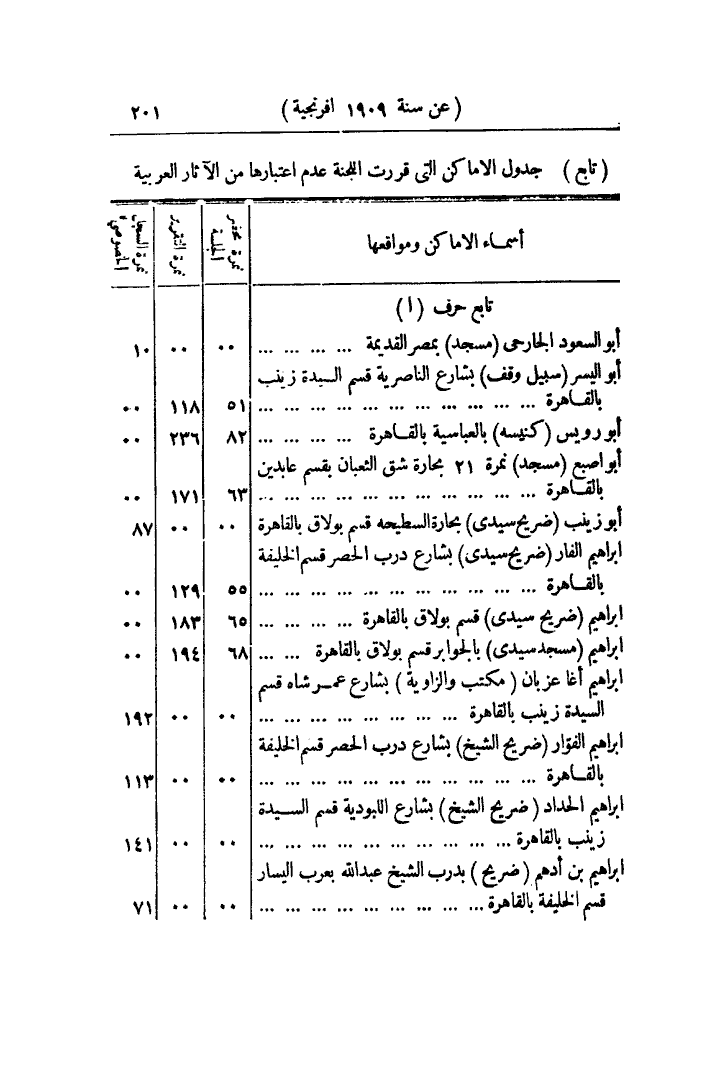 (عن سنة ١٩٠٩ افرنجية) ٢٠١
(تابع) جدول الاماكن التى قررت اللجنة عدم اعتبارها من الآثار العربية
أسماء الاماكن ومواقعها | نمرة محضر الجلسة | نمرة التقرير | نمرة السجل الخصوصى
تابع حرف (ا)
أبو السعود الجارحى (مسجد) بمصر القديمة ... ... ... ... ٠٠ ٠٠ ١٠
أبو اليسر (سبيل وقف) بشارع الناصرية قسم السيدة زينب
بالقاهرة ... ... ... ... ... ... ... ... ... ... ... ٥١ ١١٨ ٠٠
أبو رويس (كنيسه) بالعباسية بالقاهرة ... ... ... ... ٨٢ ٢٣٦ ٠٠
أبو اصبع (مسجد) نمرة ٢١ بحارة شق الثعبان بقسم عابدين
بالقاهرة ... ... ... ... ... ... ... ... ... ... ... ٦٣ ١٧١ ٠٠
أبو زينب (ضريح سيدى) بحارة السطيحه قسم بولاق بالقاهرة ٠٠ ٠٠ ٨٧
ابراهيم الفار (ضريح سيدى) بشارع درب الحصر قسم الخليفة
بالقاهرة ... ... ... ... ... ... ... ... ... ... ... ٥٥ ١٢٩ ٠٠
ابراهيم (ضريح سيدى) قسم بولاق بالقاهرة ... ... ... ... ٦٥ ١٨٣ ٠٠
ابراهيم (مسجد سيدى) بالجوابر قسم بولاق بالقاهرة ... ... ٦٨ ١٩٤ ٠٠
ابراهيم أغا عزبان (مكتب والزاوية) بشارع عمر شاه قسم
السيدة زينب بالقاهرة ... ... ... ... ... ... ... ... ٠٠ ٠٠ ١٩٢
ابراهيم الفوّار (ضريح الشيخ) بشارع درب الحصر قسم الخليفة
بالقاهرة ... ... ... ... ... ... ... ... ... ... ... ٠٠ ٠٠ ١١٣
ابراهيم الحداد (ضريح الشيخ) بشارع اللبودية قسم السيدة
زينب بالقاهرة ... ... ... ... ... ... ... ... ... ... ٠٠ ٠٠ ١٤١
ابراهيم بن أدهم (ضريح) بدرب الشيخ عبدالله بعرب اليسار
قسم الخليفة بالقاهرة ... ... ... ... ... ... ... ... ... ٠٠ ٠٠ ٧١